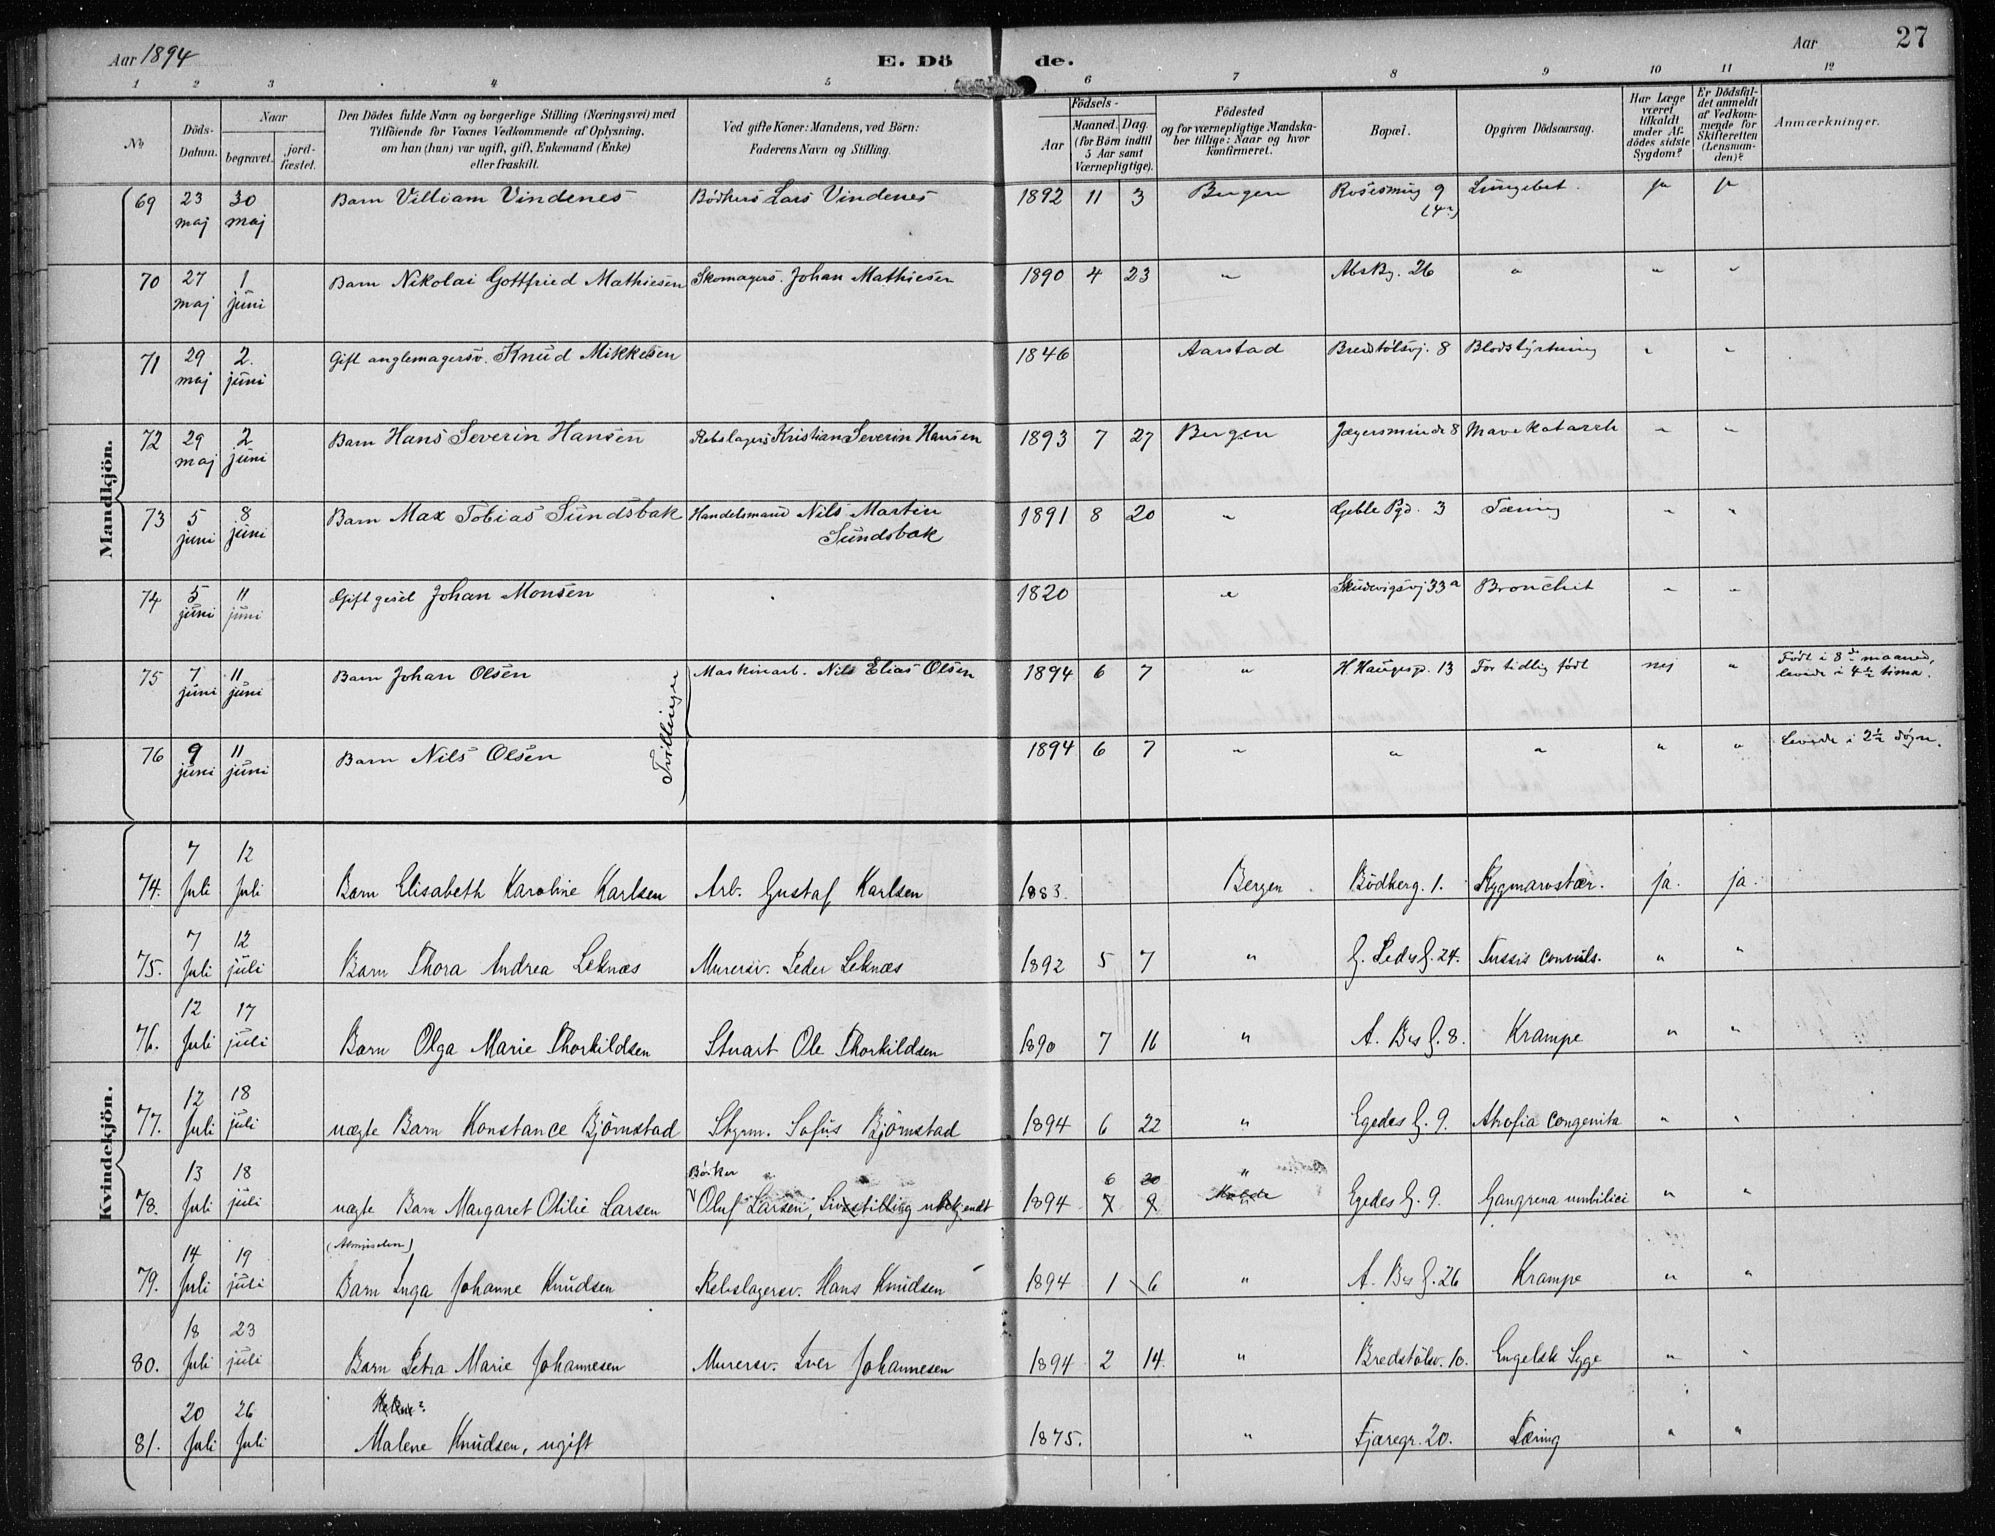 Aar 1894
E. Dö
de.
Aar
27
1 2 3 4 5 6 7 8 9 10 11 12
No
Döds-Datum.
Naar
begravet.
jord-fæstet.
Den Dödes fulde Navn og borgerlige Stilling (Næringsvei) med
Tilföiende for Voxnes Vedkommende af Oplysning,
om han (hun) var ugift, gift, Enkemand (Enke)
eller fraskilt.
Ved gifte Koner: Mandens, ved Börn:
Faderens Navn og Stilling.
Födsels-
Aar
Maaned. Dag
(for Börn indtil
5 Aar samt
Værnepligtige).
Födested
og for værnepligtige Mandska-
ber tillige: Naar og hvor
konfirmeret.
Bopæl.
Opgiven Dödsaarsag.
Har Læge
været
tilkaldt
under Af-
dödes sidste
Sygdom?
Er Dödsfal-
det anmeldt
af Vedkom-
mende for
Skifteretten
(Lensman-
den)?
Anmærkninger.
Mandkjön.
69 23 maj 30 maj Barn Villiam Vindenes Bödkers Lars Vindenes 1892 11 3 Bergen Rosesmug 9 Lungebet. ja ja
70 27 maj 1 juni Barn Nikolai Gottfried Mathiesen Skomagers. Johan Mathiesen 1890 4 23 " Absbg. 26 " " "
71 29 maj 2. juni Gift anglemagersv. Knud Mikkelsen 1846 Aarstad Bredstölsvj. 8 Blodstyrtning " "
72 29 maj 2 juni Barn Hans Severin Hansen Rebslagers Kristian Severin Hansen 1893 7 27 Bergen Jægersminde 8 Mavekatarrh " "
73 5 juni 8 juni Barn Max Tobias Sundsbak Handelsmand Nils Martin
Sundsbak 1891 8 20 " Geble Pgd. 3 Tæring " "
74 5 juni 11 juni Gift gesel Johan Monsen 1820 " Skudevigsvj 33a Bronchit " "
75 7 juni 11 juni Barn Johan Olsen Maskinarb. Nils Elias Olsen 1894 6 7 " H. Haugesg. 13 For tidlig født nej " Født i 8de maaned,
levede i 4½ time.
Tvillinger
76 9 juni 11 juni Barn Nils Olsen 1894 6 7 " " " " " Levede i 2½ døgn.
Kvindekjön.
74. 7 Juli 12 Juli Barn Elisabeth Karoline Karlsen Arb. Gustaf Karlsen 1883. Bergen Bödkerg. 1. Rygmarvstær. ja. ja.
75. 7 Juli 12 juli Barn Thora Andrea Leknæs Murersv. Peder Leknæs 1892 5 7 " G. 24. Tussis convuls. " "
76. 12 Juli 17 juli Barn Olga Marie Thorkildsen Stuart Ole Thorkildsen 1890 7 16 " A. Bes G. 8. Krampe " "
77. 12 Juli 18 juli uægte Barn Konstance Bjørnstad Styrm. Sofus Bjørnstad 1894 6 22 " Egedes G. 9. Atrofia congenita " "
Bödker 6 20 "
78. 13 Juli 18 juli uægte Barn Margaret Otilie Larsen Oluf Larsen, Livsstilling ubekjendt 1894 7 9 Molde Egedes G. 9. Gangrena umbilici " "
79. 14 Juli 19 juli Barn Inga Johanne Knudsen Rebslagersv. Hans Knudsen 1894 1 6 " A. Bes G. 26 Krampe " "
80. 18 Juli 23 juli Barn Petra Marie Johannesen Murersv. Iver Johannesen 1894 2 14. " Bredstölsv. 10. Engelsk Syge " "
81. 20 Juli 26 Juli Malene Knudsen, ugift 1875. " Fjæregr. 20. Tæring " "